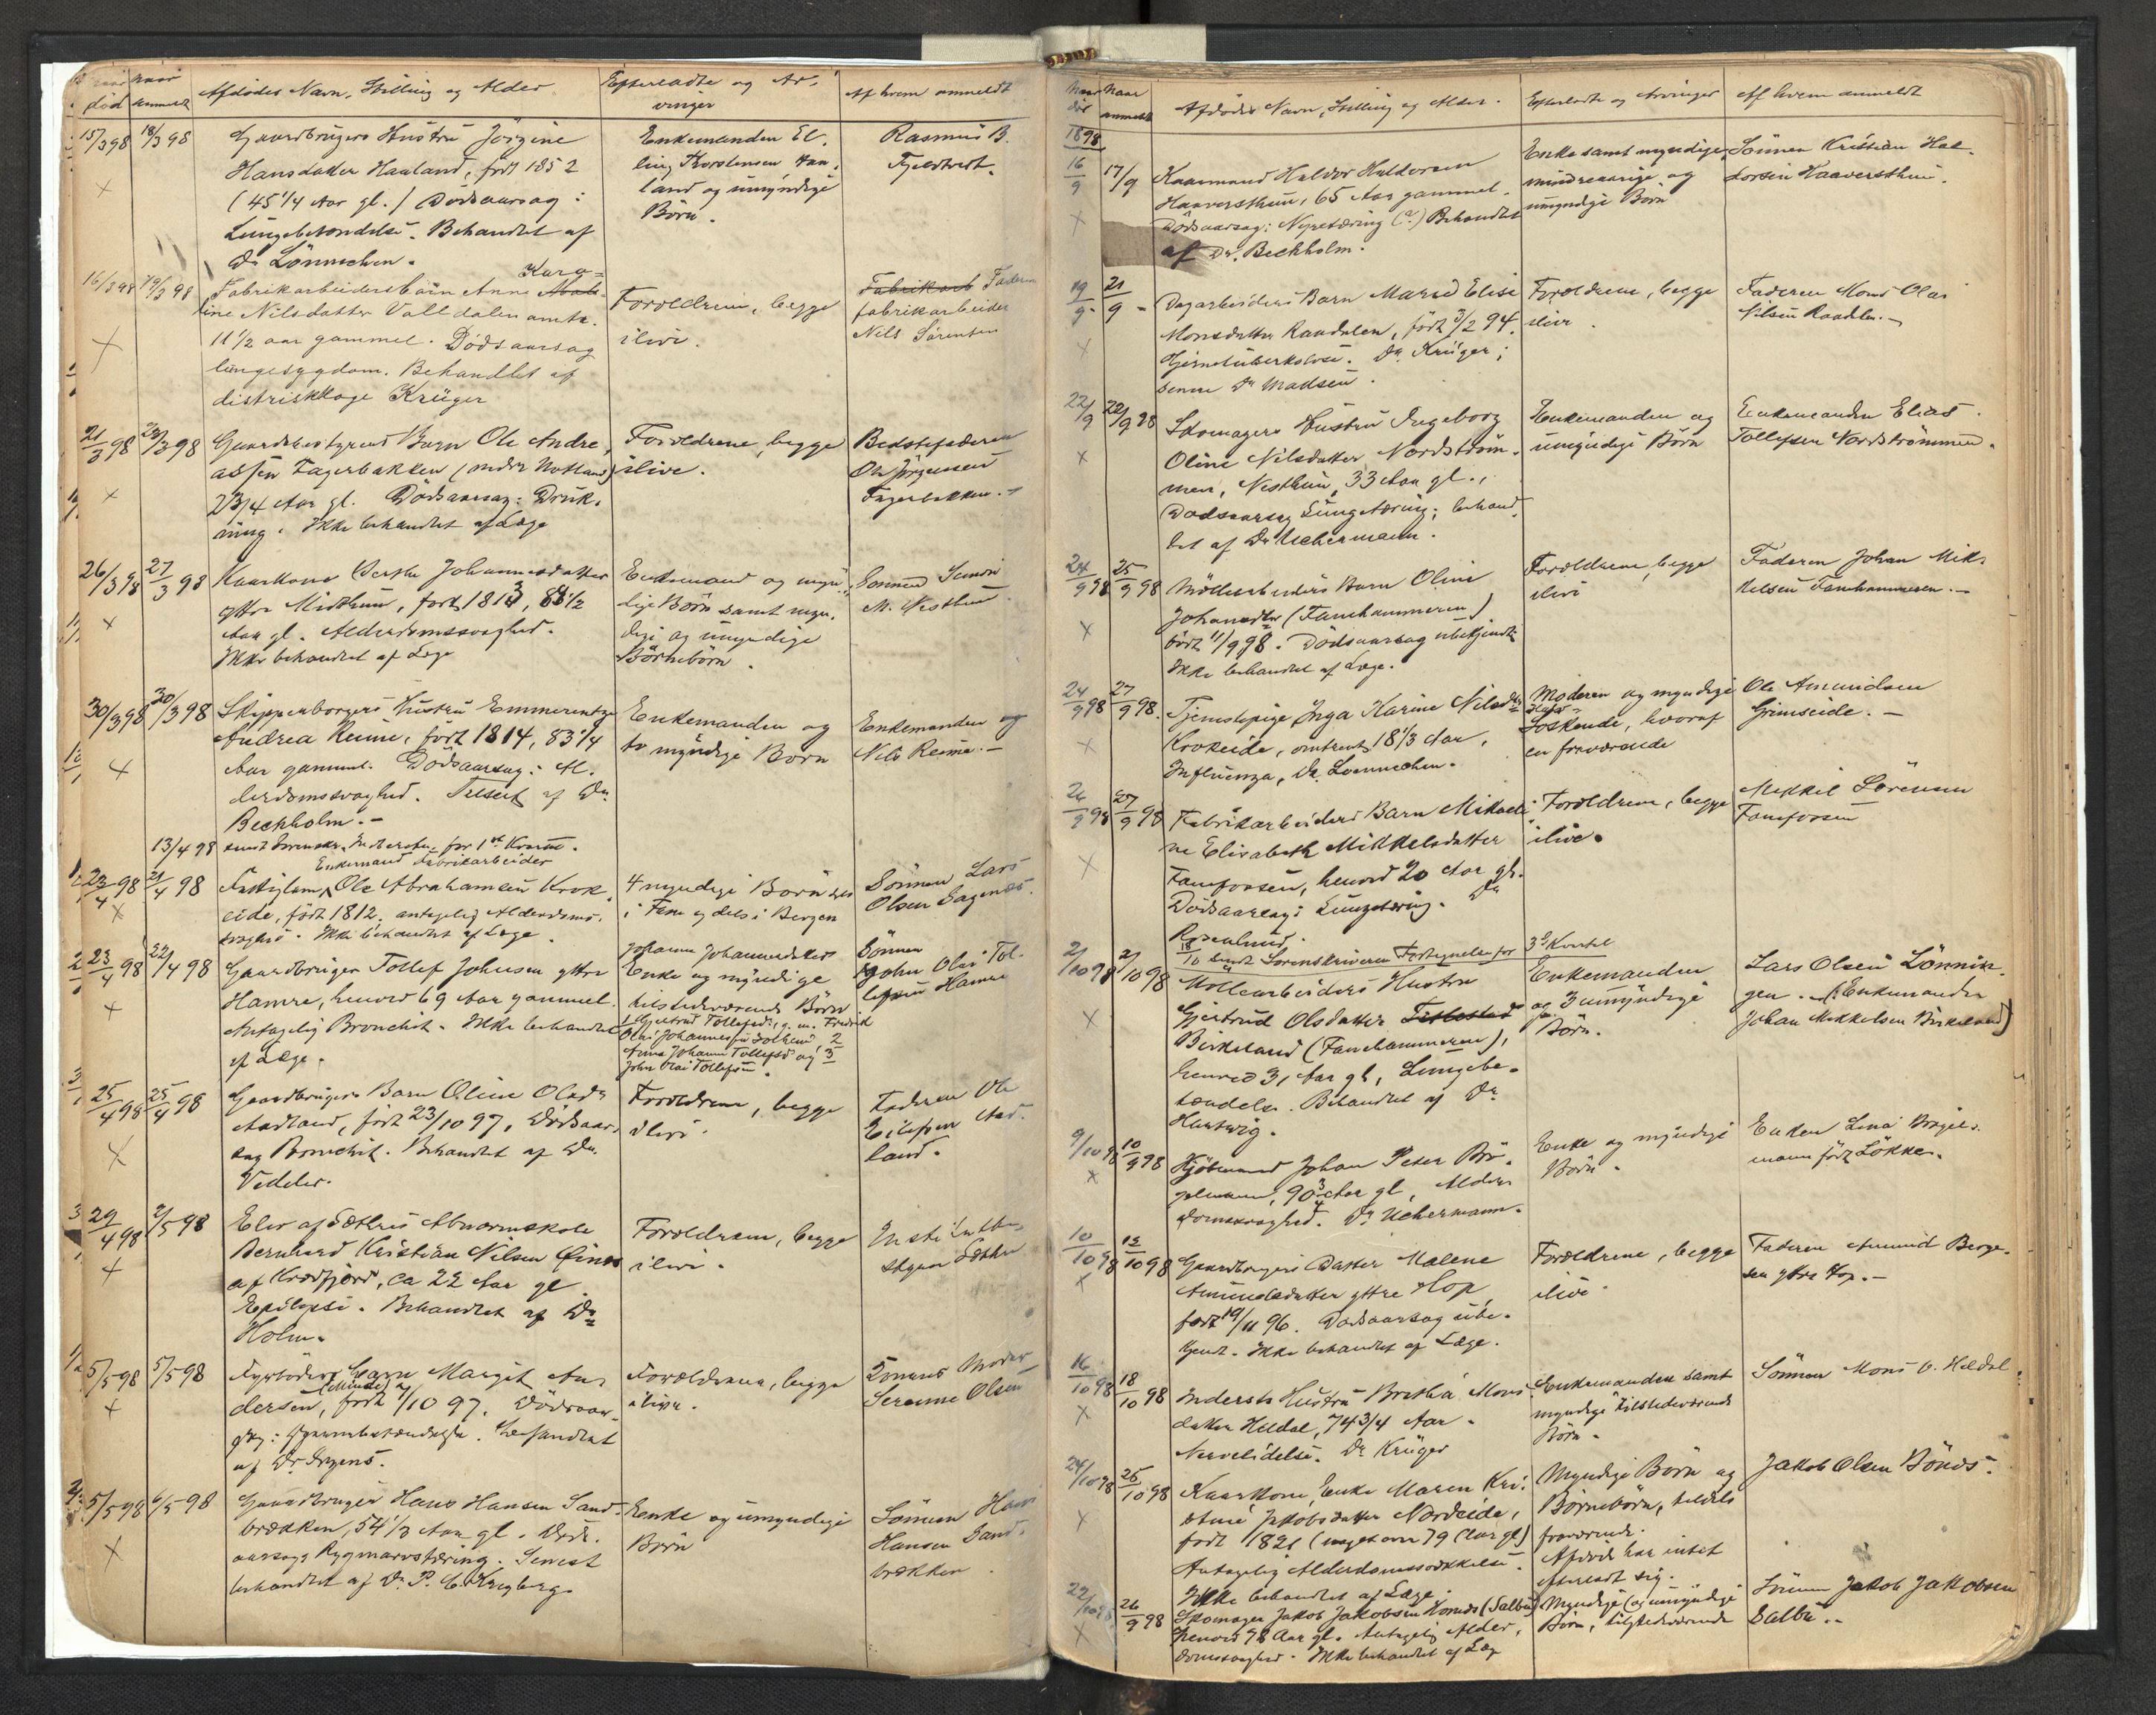 Afdødes Navn, Stilling og Alder
Efterladte og Ar-
vinger
Af hvem anmeldt
15/3 98 18/3 98
Gaardbrugers Hustru Jörgine
Hansdatter Haaland, født 1852
(45 1/4 Aar gl.) Dödsaarsag:
Lungebetændelse. Behandlet af
Dr Lönnechen.
Enkemanden El-
ling Thorstensen Haa-
land og umyndige
Börn.
Rasmus B.
Fjeldtvedt.
16/3 98 19/3 98
Karo-
Fabrikarbeiders barn Anna
line Nilsdatter
11 1/2 aar gammel. Dødsaarsag
lungesygdom. Behandlet af
distriktlæge Krüger
Forældrene, begge
ilive.
Fabrikarb Faderen
fabrikarbeider
Nils Sørensen
21/3 98 23/3 98
Gaardbestyrers Barn Ole Andre-
assen Fagerbakken
2 3/4 Aar gl. Dödsaarsag: Druk-
ning. Ikke behandlet af Læge
Forældrene, begge
ilive.
Bedstefaderen
Ole Jörgensen
Fagerbakken.
26/3 98 27/3 98
Kaarkone Berthe Johannesdatter
yttre Midthun, født 1813,
Aar gl. Alderdomssvaghed.
Ikke behandlet af Læge
Enkemand og myn-
dige Börn samt myn-
dige og umyndige
Börnebörn.
Sönnen Simon
M. Nesthun
30/3 98 30/3 98
Skipperborgers Hustru Emmerentze
Andrea Reime, født 1814, 83 1/4
Aar gammel. Dödsaarsag: Al-
derdomssvaghed. Tilseet af Dr.
Beckholm.-
Enkemanden og
to myndige Börn
Enkemanden og
Nils Reime.-
13/4 98 sendt Sorenskr. for 1st Kvartal.
Enkemand Fabrikarbeider
21/4 98
Ole Abrahamsen Krok-
eide, født 1812. antagelig Alderdoms-
svaghed. Ikke behandlet af Læge.
4 myndige Börn dels
i Fane og dels i Bergen
Sönnen Lars
Olsen Sagenæs.
23/4 98 22/4 98
Gaardbruger Tollef Johnsen yttre
Hamre, henved 69 Aar gammel.
Antagelig Bronchit. Ikke behandlet
af Læge.
Johanna Johannesdatter
Enke og myndige
tilstedeværende Börn
1 Gjertrud Tollefsdtr, g. m. Fredrik
Olai Johannessen Solheim, 2
Anna Johanna Tollefsd og 3
John Olai Tollefsen.
Sönnen
John Olai Tol-
lefsen Hamre
25/4 98 25/4 98
Gaardbrugers Barn Oline Olsdr
Aadland, født 23/10 97. Dödsaar-
sag Bronchit. Behandlet af Dr.
Vedeler.
Forældrene, begge
ilive.
Faderen Ole
Eilefsen Aad-
land.
29/4 98 2/5 98
Elev af Sæthres Abnormskole
Bernhard Kristian Nilsen Öines
af Kroedfjord, ca 22 Aar gl
Epilepsi. Behandlet af Dr
Holm.
Forældrene, begge
ilive.
Institutbe-
styrer Sæthre
5/5 98 5/5 98
Fyrböders barn Margit An-
dersen, født 1/10 97. Dödsaar-
sag: Behandlet
af Dr Irgens.
Forældrene, begge
ilive.
Serianne Olsen
5/5 98 6/5 98
Gaardbruger Hans Hansen Sand-
brækken, 54 1/3 Aar gl. Döds-
aarsag: Rygmarvstæring. Senest
behandlet af Dr. P. C. Kregberg
Enke og umyndige
Börn
Sönnen Hans
Hansen Sand-
brækken.
Naar
död
Naar
anmeldt
Afdödes Navn, Stilling og Alder.
Efterladte og Arvinger
Af hvem anmeldt
1898
16/9 17/9
Kaarmand Haldor Haldorsen
Haaversthun, 65 Aar gammel.
Dödsaarsag: Nyretæring (?) Behandlet
af Dr. Beckholm.
Enke samt myndige,
mindreaarige og
umyndige Börn
Sönnen Kristian Hal-
dorsen Haaversthun.
19/9 21/9
Dagarbeiders Barn Marie Elise
Monsdatter Raadalen, født 3/2 94.
Hjernetuberkolose. Dr. Krüger;
senere Dr Madsen.
Forældrene, begge
ilive.
Faderen Mons Olai
Nilsen Raadalen.-
22/9 22/9 98
Skomagers Hustru Ingeborg
Oline Nilsdatter Nordström-
men, Nesthun, 33 Aar gl.,
Dødsaarsag Lungetæring; behand-
let af Dr Uchermann.
Enkemanden og
umyndige Börn
Enkemanden Elias
Tollefsen Nordströmmen.
24/9 98 25/9 98
Möllearbeiders Barn Oline
Johansdtr (Fanehammeren)
født 11/9 98. Dödsaarsag ubekjendt
Ikke behandlet af Læge.
Forældrene, begge
ilive
Faderen Johan Mik-
kelsen Fanehammeren.-
24/9 98 27/9 98.
Tjenestepige Inga Karine Nilsdtr
Krokeide, omtrent 18 1/3 Aar,
Influenza, Dr. Lönnechen.
Moderen og myndige
Söskende, hvoraf
en fraværende
Ole Amundsen
Grimseide.-
26/9 98 27/9 98
Fabrikarbeiders Barn Mikaeli-
ne Elisabeth Mikkelsdatter
Fanefossen, henved 20 Aar gl.
Dödsaarsag: Lungetæring. Dr
Rosenlund.
Forældrene, begge
ilive.
Mikkel Sörensen
Fanefossen
18/10 sendt Sorenskriveren Fortegnelse for 3d Kvartal
2/10 98 2/10 98
Möllearbeiders Hustru
Gjertrud Olsdatter Titlestad
Birkeland (Fanehammeren),
henved 31 Aar gl, Lungebe-
tændelse. Behandlet af Dr
Hartwig.
Enkemanden
og 3 umyndige
Börn.
Lars Olsen Lönnin-
gen. (: Enkemanden
Johan Mikkelsen Birkeland)
9/10 98 10/9 98
Kjöbmand Johan Peter Brö-
gelmann, 90 3/4 Aar gl, Alder-
domssvaghed. Dr Uchermann.
Enke og myndige
Börn.
Enken Lina Brögel-
mann født Lökke.
10/10 98 12/10 98
Gaardbrugers Datter Malene
Amundsdatter yttre Hop
født 19/11 96. Dödsaarsag ube-
kjendt. Ikke behandlet af Læge.
Forældrene, begge
ilive
Faderen Amund Berge-
sen yttre Hop.-
16/10 98 18/10 98
Indersts Hustru Bretha Mons-
datter Heldal, 74 3/4 Aar.
Nervelidelse. Dr Krüger
Enkemanden samt
myndige tilstedeværende
Börn.
Sönnen Mons O. Heldal.
24/10 98 25/10 98
Kaarkone, Enke Maren Kri-
stine Jakobsdatter Nordeide,
født 1821 (noget over 79 Aar gl)
Antagelig Alderdomssvækkelse.
Ikke behandlet af Læge.
Myndige Börn og
Börnebörn, tildels
fraværende.
Afdöde har intet
efterladt sig.
Jakob Olsen Bönes.
22/10 98 26/9 98
Skomager Jakob Jakobsen (Salbu)
henved 78 Aar gl. Antagelig Alder-
domssvaghed. Ikke behandlet af Læge
Myndige (og umyndige
Börn, tilstedeværende
Sönnen Jakob Jakobsen
Salbu.